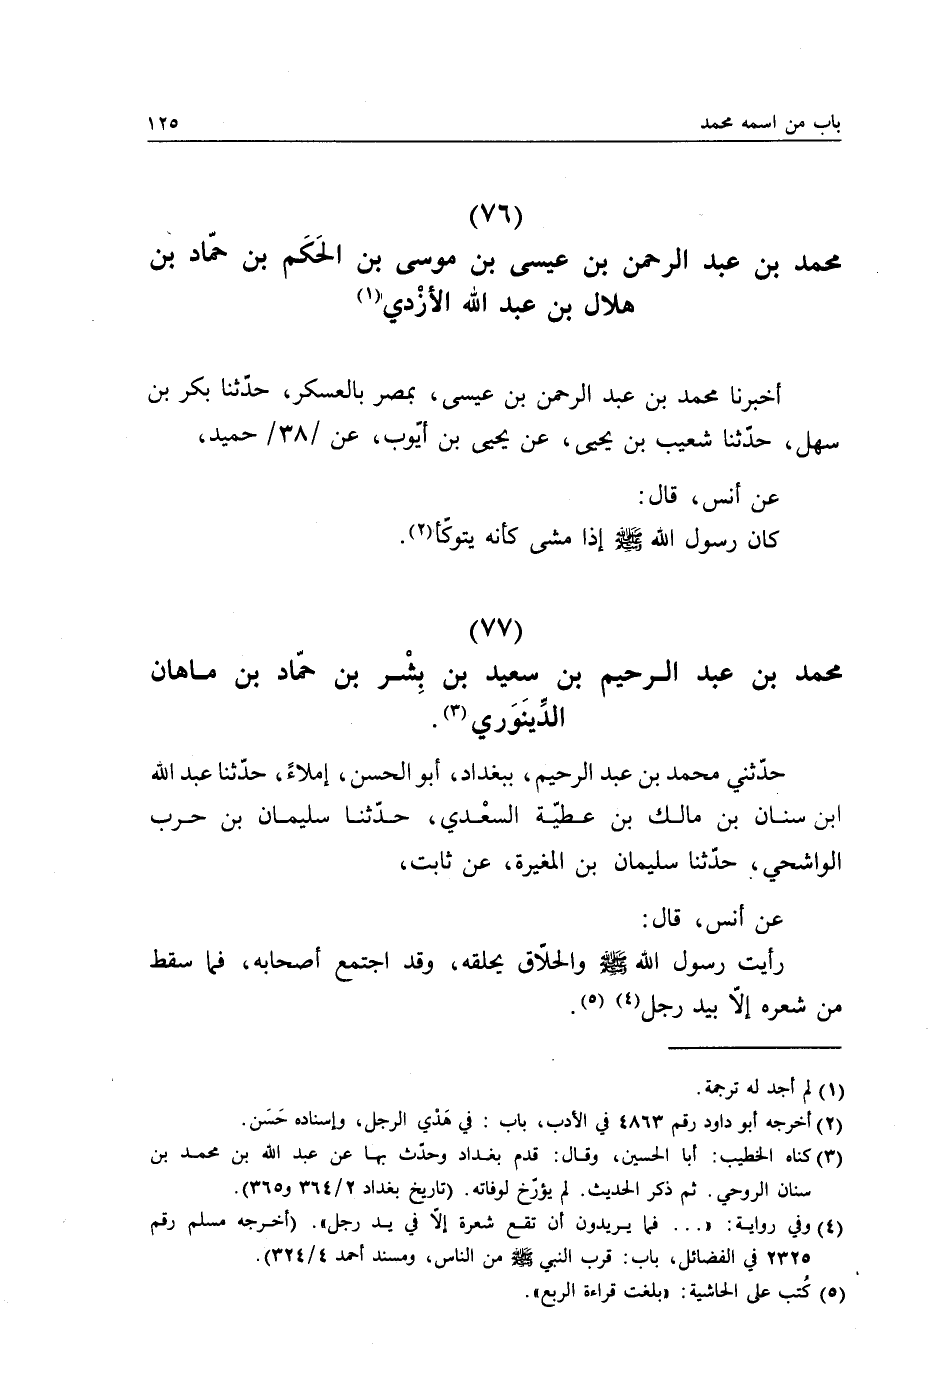 باب من اسمه محمد ١٢٥
(٧٦)
محمد بن عبد الرحمن بن عيسى بن موسى بن الحَكَم بن حمّاد بن
هلال بن عبد الله الأزْدي(١)
أخبرنا محمد بن عبد الرحمن بن عيسى، بمصر بالعسكر، حدّثنا بكر بن
سهل، حدّثنا شعيب بن يحيى، عن يحيى بن أيّوب، عن /٣٨/ حميد،
عن أنس، قال:
كان رسول الله ﷺ إذا مشى كأنه يتوكّأ(٢).
(٧٧)
محمد بن عبد الـرحيم بن سعيد بن بِشْـر بن حمّاد بن مـاهان
الدِّينَوَري(٣).
حدّثني محمد بن عبد الرحيم، ببغداد، أبو الحسن، إملاءً، حدّثنا عبد الله
ابن سنـان بن مالـك بن عـطيّـة السعْـدي، حـدّثنـا سليمـان بن حـرب
الواشحي، حدّثنا سليمان بن المغيرة، عن ثابت،
عن أنس، قال:
رأيت رسول الله ﷺ والحلّاق يحلقه، وقد اجتمع أصحابه، فما سقط
من شعره إلّا بيد رجل(٤) (٥).
(١) لم أجد له ترجمة.
(٢) أخرجه أبو داود رقم ٤٨٦٣ في الأدب، باب : في هَدْي الرجل، وإسناده حَسَن.
(٣) كناه الخطيب: أبا الحسين، وقـال: قدم بغـداد وحدّث بهـا عن عبد الله بن محمـد بن
سنان الروحي. ثم ذكر الحديث. لم يؤرّخ لوفاته. (تاريخ بغداد ٣٦٤/٢ و٣٦٥).
(٤) وفي روايـة: «... فما يـريدون أن تقـع شعرة إلّا في يـد رجل». (أخـرجه مسلم رقم
٢٣٢٥ في الفضائل، باب: قرب النبي ﷺ من الناس، ومسند أحمد ٣٢٤/٤).
(٥) كُتب على الحاشية: «بلغت قراءة الربع».